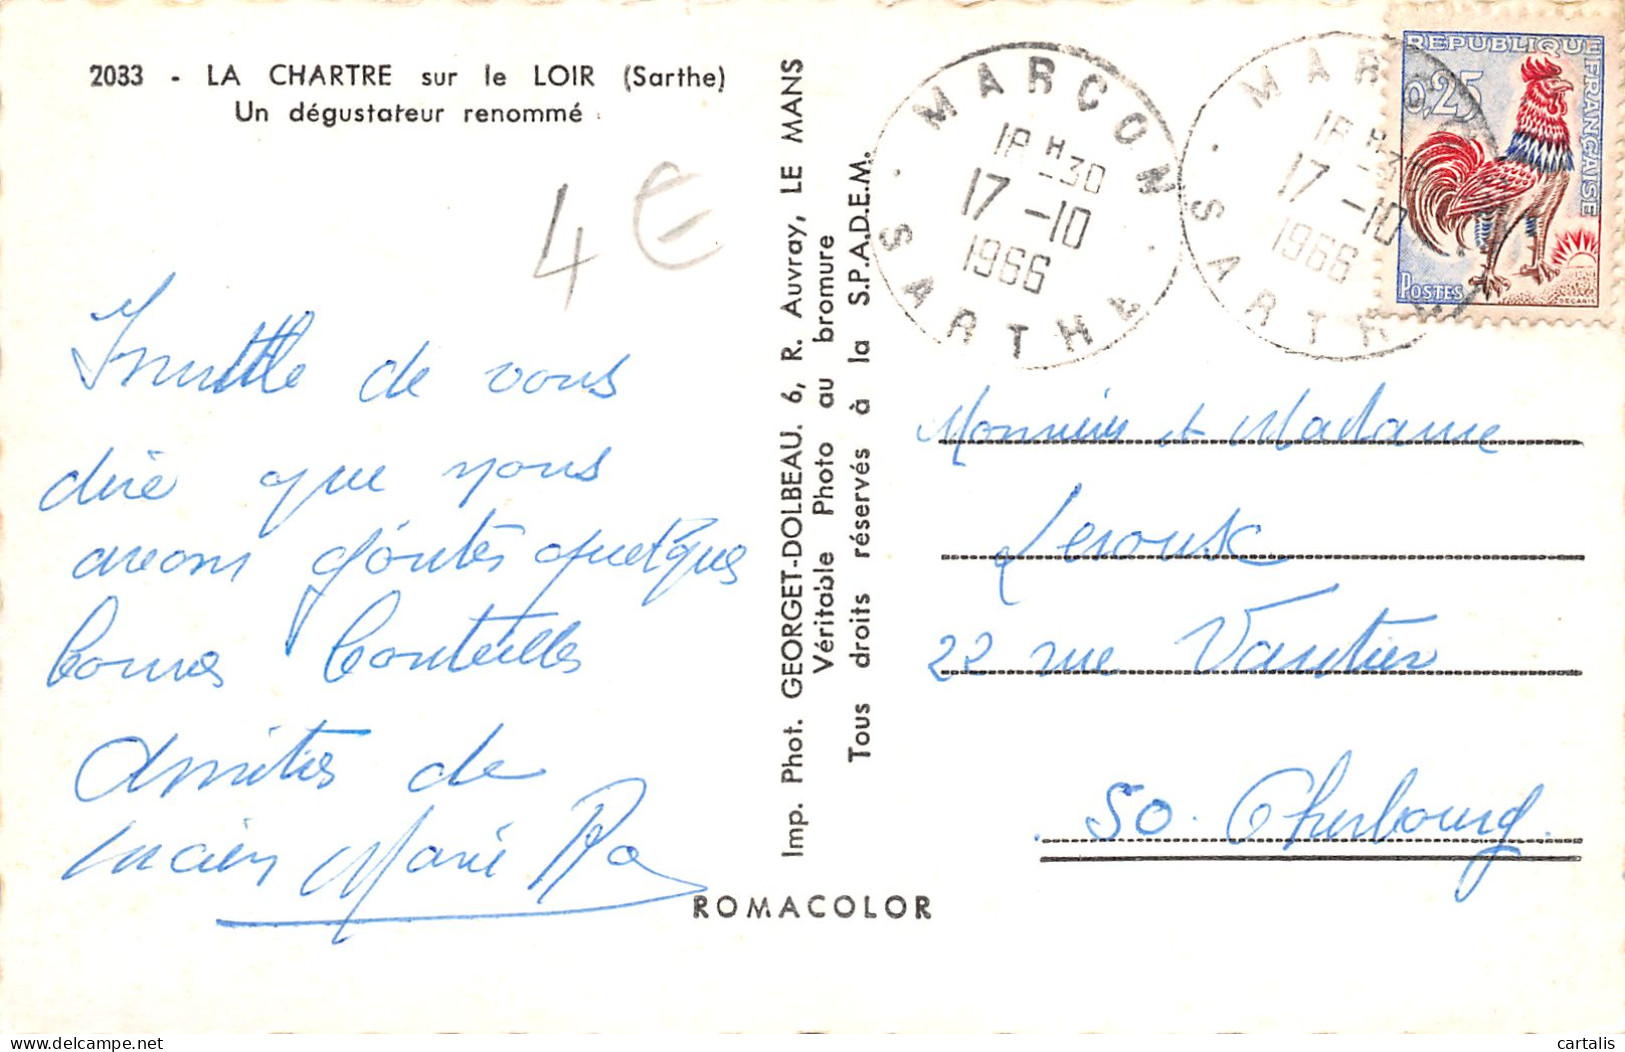 2033 - LA CHARTRE sur le LOIR (Sarthe)
Un dégustateur renommé
4 €
Inutile de vous
dire que nous
avons goûtés quelques
bonnes bouteilles
Amitiés de
Lucien Marie
Imp. Phot. GEORGET-DOLBEAU. 6, R. Auvray, LE MANS
Véritable Photo au bromure
Tous droits réservés à la S.P.A.D.E.M.
ROMACOLOR
MARCON
18 H 30
17 -10
1966
SARTHE
MARCON
18 H 30
17 -10
1966
SARTHE
REPUBLIQUE FRANÇAISE
0,25
POSTES
DECARIS
Monsieur et Madame
Leroux
22 rue Vautier
50. Cherbourg.
cartalis